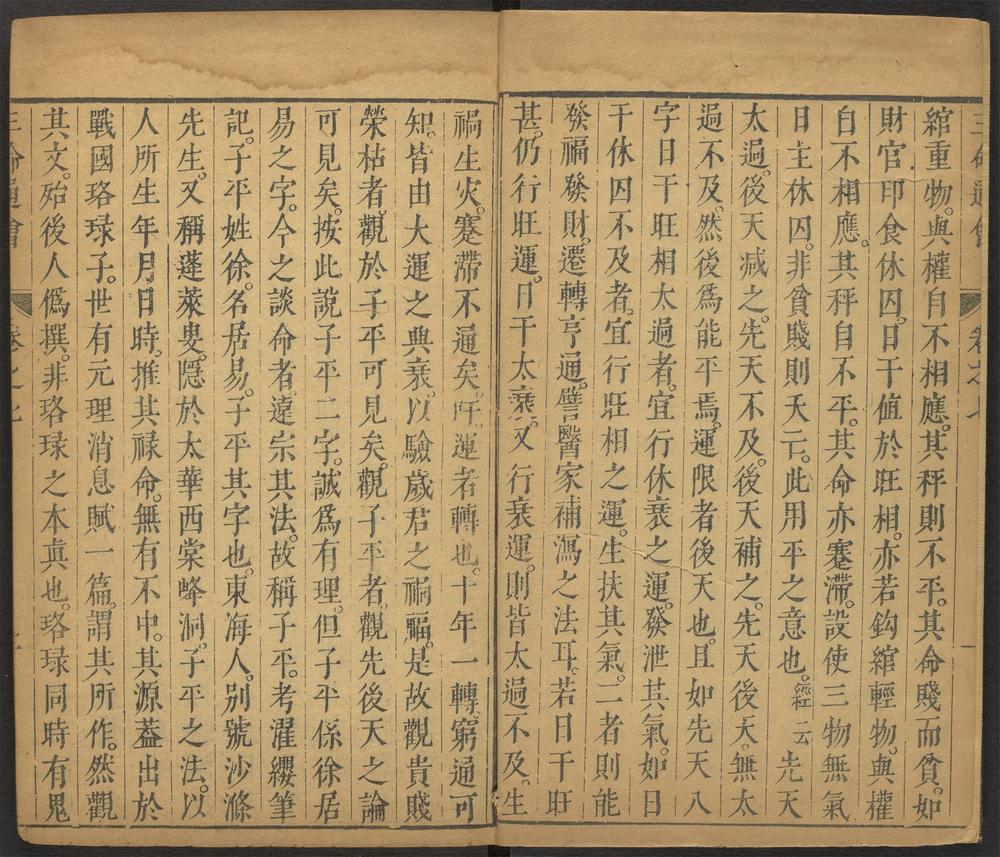 三命通會 卷之七 一
綰重物。與權自不相應。其秤則不平。其命賤而貧。如
財官印食休囚。日干值於旺相。亦若鈎綰輕物。與權
自不相應。其秤自不平。其命亦蹇滯。設使三物無氣
日主休囚。非貧賤則夭亡。此用平之意也。經云先天
太過。後天減之。先天不及。後天補之。先天後天。無太
過不及。然後爲能平焉。運限者後天也。且如先天八
字日干旺相太過者。宜行休衰之運。發泄其氣。如日
干休囚不及者。宜行旺相之運。生扶其氣。二者則能
發福發財。遷轉亨通。譬醫家補瀉之法耳。若日干旺
甚。仍行旺運。日干太衰。又行衰運。則皆太過不及。生
禍生灾。蹇滯不通矣。吁。運者轉也。十年一轉。窮通可
知。皆由大運之興衰。以驗歲君之禍福。是故觀貴賤
榮枯者。觀於子平可見矣。觀子平者。觀先後天之論
可見矣。按此說子平二字。誠爲有理。但子平係徐居
易之字。今之談命者遠宗其法。故稱子平。考濯纓筆
記。子平姓徐。名居易。子平其字也。東海人。別號沙滌
先生。又稱蓬萊叟。隱於太華西棠峰洞。子平之法。以
人所生年月日時。推其祿命。無有不中。其源葢出於
戰國珞琭子。世有元理消息賦一篇。謂其所作。然觀
其文。殆後人僞撰。非珞琭之本真也。珞琭同時有鬼
三命通會 卷之七